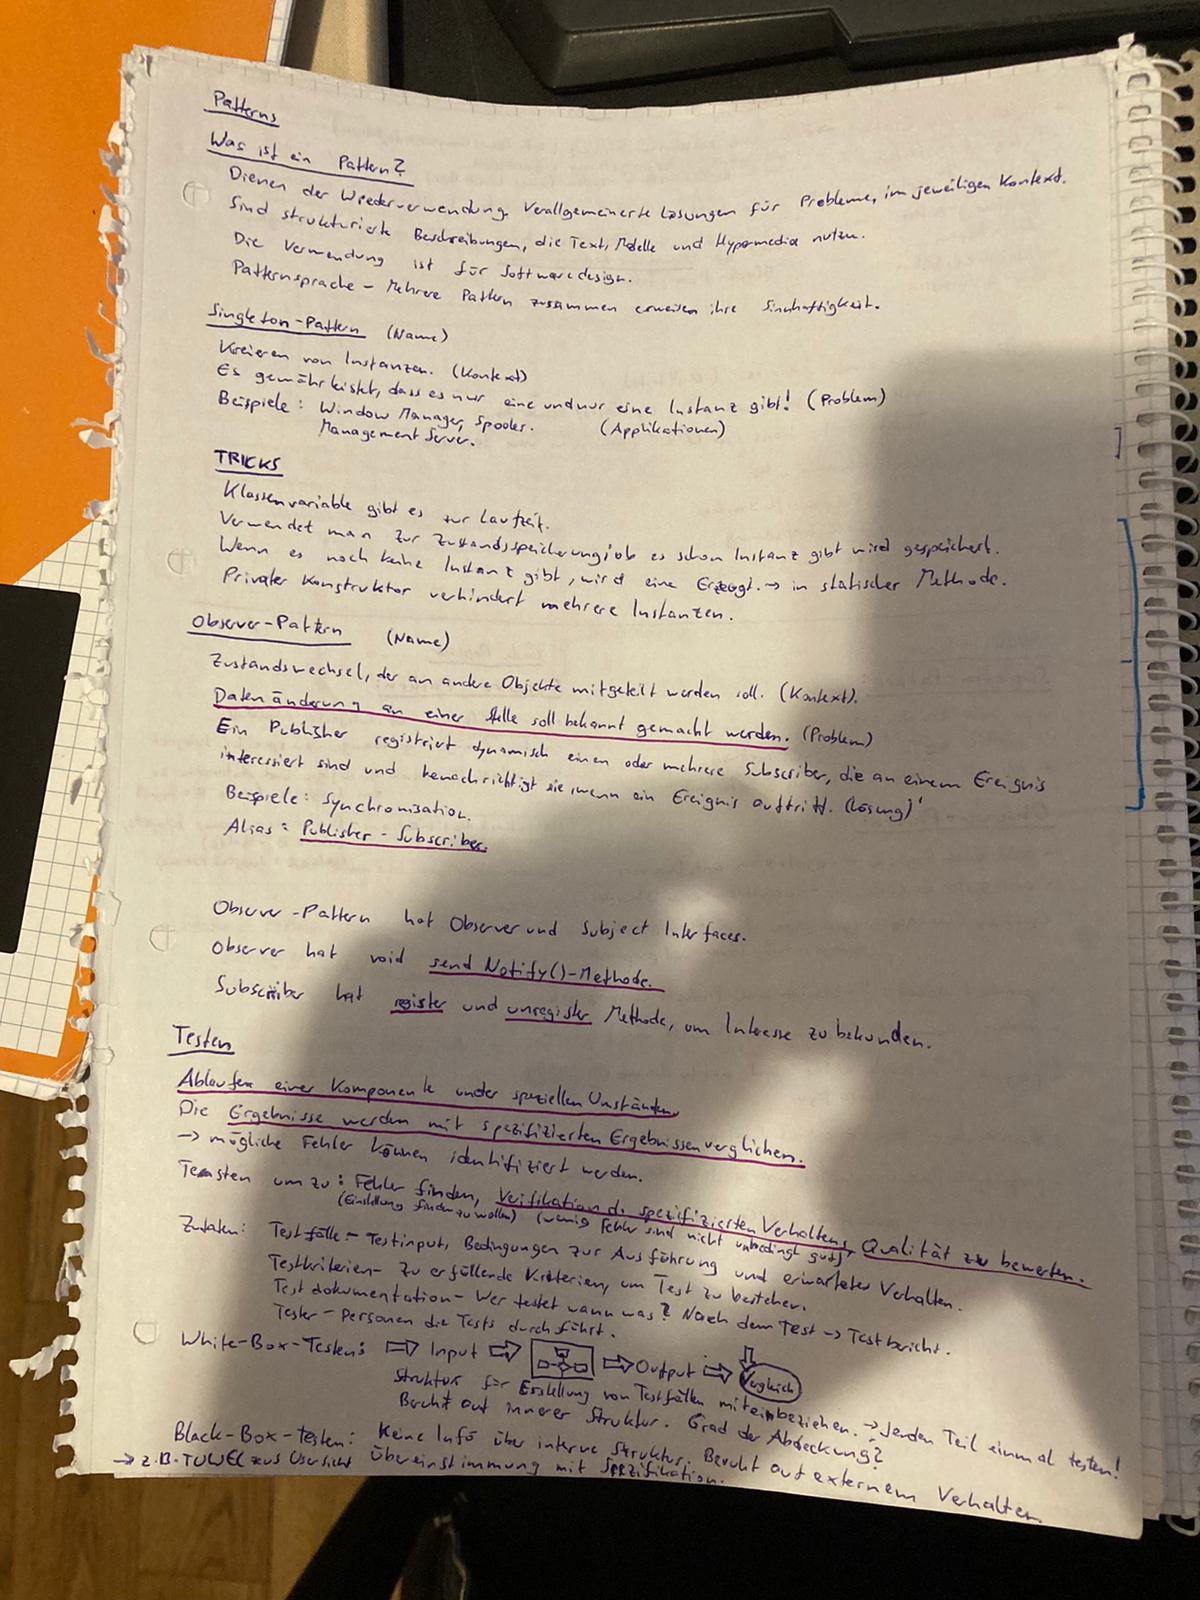 Patterns
Was ist ein Pattern?
Dienen der Wiederverwendung. Verallgemeinerte Lösungen für Probleme, im jeweiligen Kontext.
Sind strukturierte Beschreibungen, die Text, Modelle und Hypermedia nutzen.
Die Verwendung ist für Softwaredesign.
Patternsprache - Mehrere Pattern zusammen erweisen ihre Sinnhaftigkeit.
Singleton-Pattern (Name)
Kreieren von Instanzen. (Kontext)
Es gewährleistet, dass es nur eine und nur eine Instanz gibt! (Problem)
Beispiele: Window Manager, Spooler. (Applikationen)
Management Server.
TRICKS
Klassenvariable gibt es zur Laufzeit.
Verwendet man zur Zustandsspeicherung, ob es schon Instanz gibt wird gespeichert.
Wenn es noch keine Instanz gibt, wird eine Erzeugt. → in statischer Methode.
Privater Konstruktor verhindert mehrere Instanzen.
Observer-Pattern (Name)
Zustandswechsel, der an andere Objekte mitgeteilt werden soll. (Kontext).
Datenänderung an einer Stelle soll bekannt gemacht werden. (Problem)
Ein Publisher registriert dynamisch einen oder mehrere Subscriber, die an einem Ereignis
interessiert sind und benachrichtigt sie, wenn ein Ereignis auftritt. (Lösung)
Beispiele: Synchronisation.
Alias: Publisher - Subscriber.
Observer-Pattern hat Observer und Subject Interfaces.
Observer hat void send Notify()-Methode.
Subscriber hat register und unregister Methode, um Interesse zu bekunden.
Testen
Ablaufen einer Komponente unter speziellen Umständen.
Die Ergebnisse werden mit spezifizierten Ergebnissen verglichen.
→ mögliche Fehler können identifiziert werden.
Testen um zu: Fehler finden, Verifikation d. spezifizierten Verhaltens, Qualität zu bewerten.
(Einstellung finden zu wollen) (wenig Fehler sind nicht unbedingt gut)
Zutaten: Testfälle - Testinput, Bedingungen zur Ausführung und erwartetes Verhalten.
Testkriterien - Zu erfüllende Kriterien, um Test zu bestehen.
Testdokumentation - Wer testet wann was? Nach dem Test → Testbericht.
Tester - Personen die Tests durchführt.
White-Box-Testen: ⇒ Input ⇒ ⇒ Output ⇒ Vergleich
Struktur für Erstellung von Testfällen miteinbeziehen. → Jeden Teil einmal testen!
Beruht auf innerer Struktur. Grad der Abdeckung?
Black-Box-Testen: Keine Info über interne Struktur. Beruht auf externem Verhalten.
→ z.B. TUWEL Übereinstimmung mit Spezifikation.